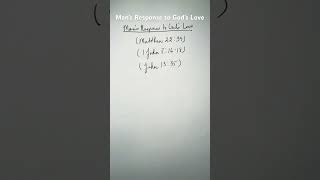 Man's Response to God's Love
Man's Response to God's Love
(Matthew 22:39)
(1 John 3:16-18)
(John 13:35)